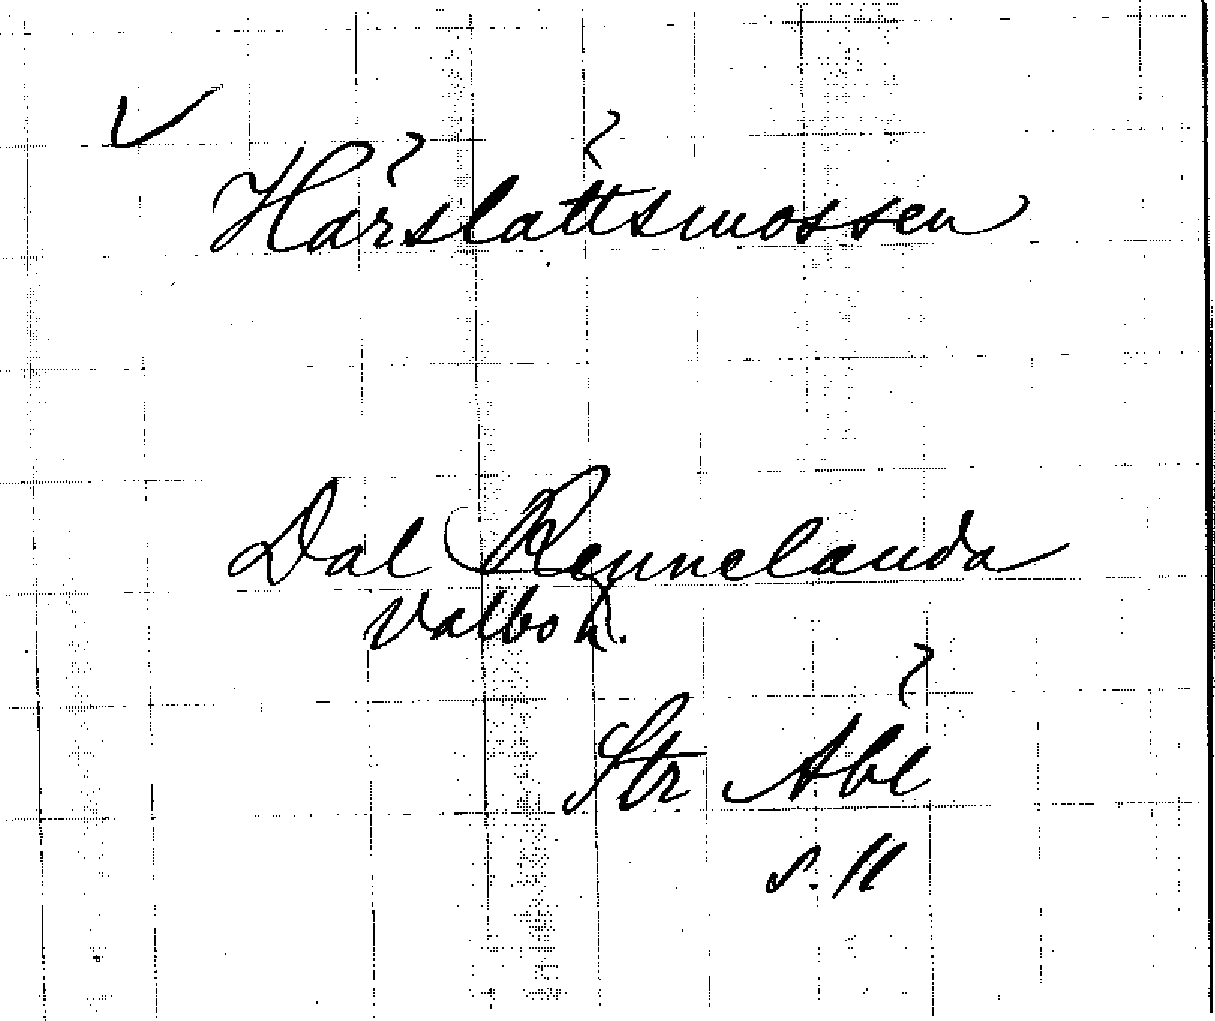 Hårslättsmossen
Dal Rennelanda
Valbo h.
Str Abe
s. 11